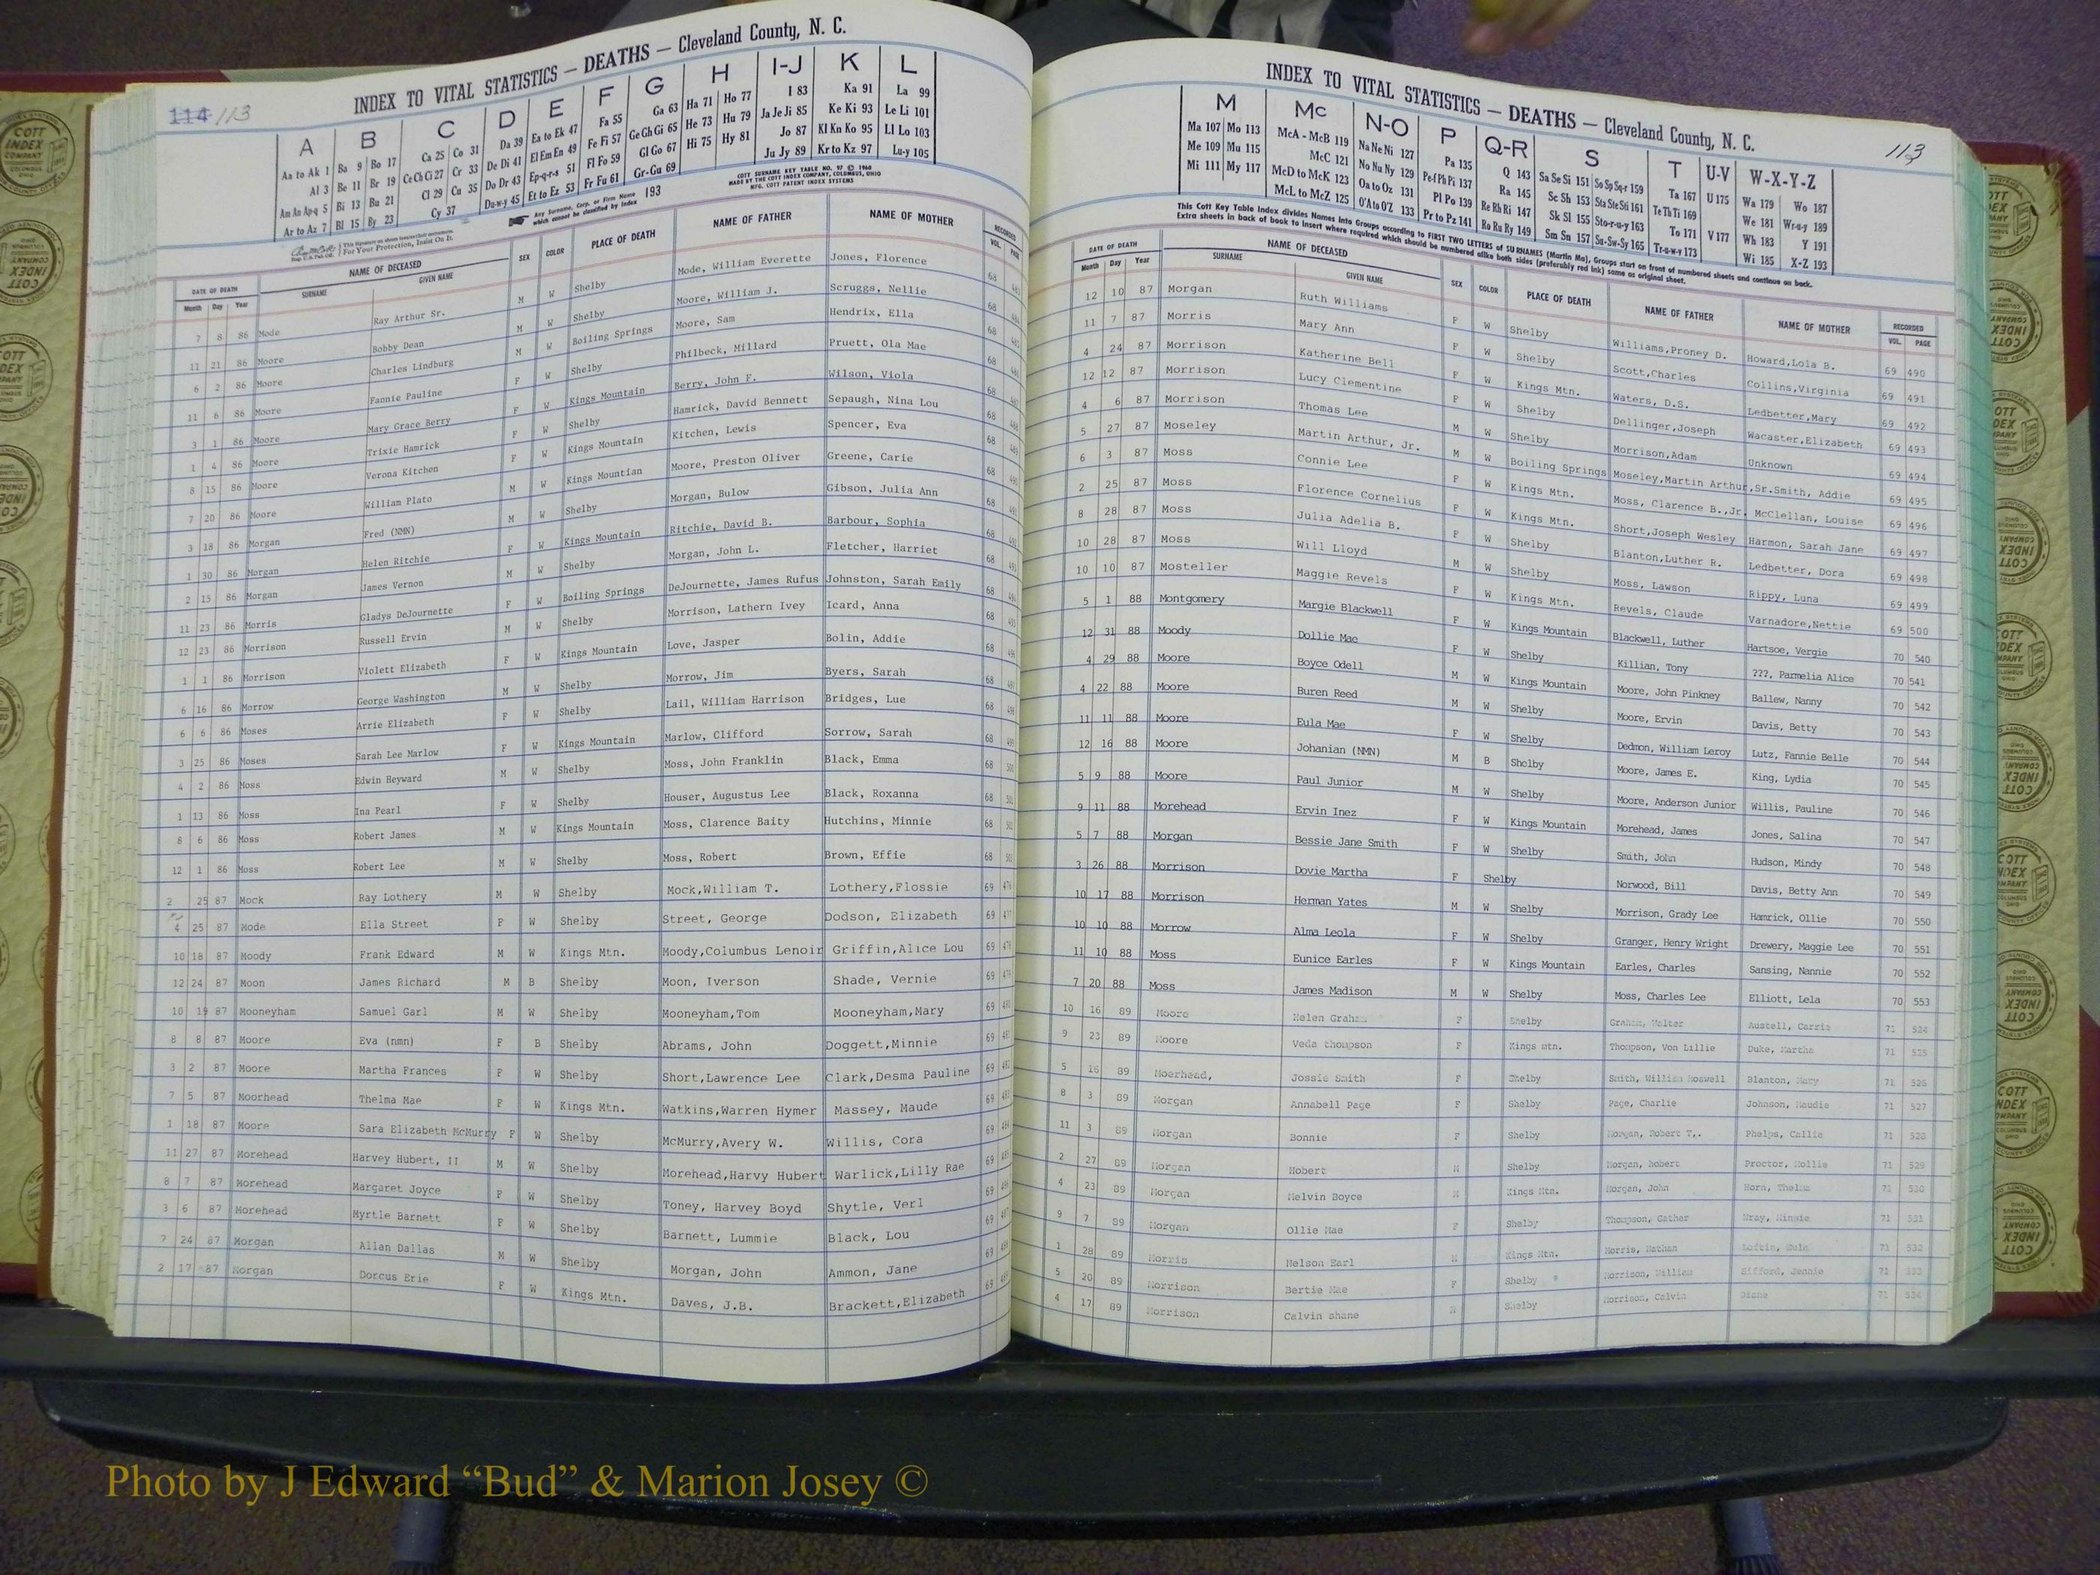 114 113
INDEX TO VITAL STATISTICS — DEATHS — Cleveland County, N. C.
A B C D E F G H I-J K L
Aa to Ak 1 Ba 9 Bo 17 Ca 25 Co 31 Da 39 Ea to Ek 47 Fa 55 Ga 63 Ha 71 Ho 77 I 83 Ka 91 La 99
Al 3 Be 11 Br 19 Ce Ch Ci 27 Cr 33 De Di 41 El Em En 49 Fe Fi 57 Ge Gh Gi 65 He 73 Hu 79 Ja Je Ji 85 Ke Ki 93 Le Li 101
Am An Ap-q 5 Bi 13 Bu 21 Cl 29 Cu 35 Do Dr 43 Ep-q-r-s 51 Fl Fo 59 Gl Go 67 Hi 75 Hy 81 Jo 87 Kl Kn Ko 95 Ll Lo 103
Ar to Az 7 Bl 15 By 23 Cy 37 Du-w-y 45 Et to Ez 53 Fr Fu 61 Gr-Gu 69 Ju Jy 89 Kr to Kz 97 Lu-y 105
COTT SURNAME KEY TABLE NO. 97 © 1960
MADE BY THE COTT INDEX COMPANY, COLUMBUS, OHIO
MFG. COTT PATENT INDEX SYSTEMS
Any Surname, Corp. or Firm Name which cannot be classified by Index 193
For Your Protection, Insist On It.
DATE OF DEATH NAME OF DECEASED SEX COLOR PLACE OF DEATH NAME OF FATHER NAME OF MOTHER RECORDED
Month Day Year SURNAME GIVEN NAME VOL. PAGE
7 8 86 Mode Ray Arthur Sr. M W Shelby Mode, William Everette Jones, Florence 68
11 21 86 Moore Bobby Dean M W Shelby Moore, William J. Scruggs, Nellie 68
6 2 86 Moore Charles Lindburg M W Boiling Springs Moore, Sam Hendrix, Ella 68
11 6 86 Moore Fannie Pauline F W Shelby Philbeck, Millard Pruett, Ola Mae 68
3 1 86 Moore Mary Grace Berry F W Kings Mountain Berry, John F. Wilson, Viola 68
1 4 86 Moore Trixie Hamrick F W Shelby Hamrick, David Bennett Sepaugh, Nina Lou 68
8 15 86 Moore Verona Kitchen F W Kings Mountain Kitchen, Lewis Spencer, Eva 68
7 20 86 Moore William Plato M W Kings Mountian Moore, Preston Oliver Greene, Carie 68
3 18 86 Morgan Fred (NMN) M W Shelby Morgan, Bulow Gibson, Julia Ann 68
1 30 86 Morgan Helen Ritchie F W Kings Mountain Ritchie, David B. Barbour, Sophia 68
2 15 86 Morgan James Vernon M W Shelby Morgan, John L. Fletcher, Harriet 68
11 23 86 Morris Gladys DeJournette F W Boiling Springs DeJournette, James Rufus Johnston, Sarah Emily 68
12 23 86 Morrison Russell Ervin M W Shelby Morrison, Lathern Ivey Icard, Anna 68
1 1 86 Morrison Violett Elizabeth F W Kings Mountain Love, Jasper Bolin, Addie 68
6 16 86 Morrow George Washington M W Shelby Morrow, Jim Byers, Sarah 68
6 6 86 Moses Arrie Elizabeth F W Shelby Lail, William Harrison Bridges, Lue 68
3 25 86 Moses Sarah Lee Marlow F W Kings Mountain Marlow, Clifford Sorrow, Sarah 68
4 2 86 Moss Edwin Heyward M W Shelby Moss, John Franklin Black, Emma 68
1 13 86 Moss Ina Pearl F W Shelby Houser, Augustus Lee Black, Roxanna 68
8 6 86 Moss Robert James M W Kings Mountain Moss, Clarence Baity Hutchins, Minnie 68
12 1 86 Moss Robert Lee M W Shelby Moss, Robert Brown, Effie 68
2 25 87 Mock Ray Lothery M W Shelby Mock,William T. Lothery,Flossie 69
4 25 87 Mode Ella Street F W Shelby Street, George Dodson, Elizabeth 69
10 18 87 Moody Frank Edward M W Kings Mtn. Moody,Columbus Lenoir Griffin,Alice Lou 69
12 24 87 Moon James Richard M B Shelby Moon, Iverson Shade, Vernie 69
10 19 87 Mooneyham Samuel Garl M W Shelby Mooneyham,Tom Mooneyham,Mary 69
8 8 87 Moore Eva (nmn) F B Shelby Abrams, John Doggett,Minnie 69
3 2 87 Moore Martha Frances F W Shelby Short,Lawrence Lee Clark,Desma Pauline 69
7 5 87 Moorhead Thelma Mae F W Kings Mtn. Watkins,Warren Hymer Massey, Maude 69
1 18 87 Moore Sara Elizabeth McMurry F W Shelby McMurry,Avery W. Willis, Cora 69
11 27 87 Morehead Harvey Hubert, II M W Shelby Morehead,Harvy Hubert Warlick,Lilly Rae 69
8 7 87 Morehead Margaret Joyce F W Shelby Toney, Harvey Boyd Shytle, Verl 69
3 6 87 Morehead Myrtle Barnett F W Shelby Barnett, Lummie Black, Lou 69
7 24 87 Morgan Allan Dallas M W Shelby Morgan, John Ammon, Jane 69
2 17 87 Morgan Dorcus Erie F W Kings Mtn. Daves, J.B. Brackett,Elizabeth 69
INDEX TO VITAL STATISTICS — DEATHS — Cleveland County, N. C.
113
M Mc N-O P Q-R S T U-V W-X-Y-Z
Ma 107 Mo 113 McA - McB 119 Na Ne Ni 127 Pa 135 Q 143 Sa Se Si 151 So Sp Sq-r 159 Ta 167 U 175 Wa 179 Wo 187
Me 109 Mu 115 McC 121 No Nu Ny 129 Pe-f Ph Pi 137 Ra 145 Sc Sh 153 Sta Ste Sti 161 Te Th Ti 169 We 181 Wr-u-y 189
Mi 111 My 117 McD to McK 123 Oa to Oz 131 Pl Po 139 Re Rh Ri 147 Sk Sl 155 Sto-r-u-y 163 To 171 V 177 Wh 183 Y 191
McL to McZ 125 O'A to O'Z 133 Pr to Pz 141 Ro Ru Ry 149 Sm Sn 157 Su-Sw-Sy 165 Tr-u-w-y 173 Wi 185 X-Z 193
This Cott Key Table Index divides Names into Groups according to FIRST TWO LETTERS of SURNAMES (Martin Ma), Groups start on front of numbered sheets and continue on back.
Extra sheets in back of book to insert where required which should be numbered alike both sides (preferably red ink) same as original sheet.
DATE OF DEATH NAME OF DECEASED SEX COLOR PLACE OF DEATH NAME OF FATHER NAME OF MOTHER RECORDED
Month Day Year SURNAME GIVEN NAME VOL. PAGE
12 10 87 Morgan Ruth Williams F W Shelby Williams,Proney D. Howard,Lola B. 69 490
11 7 87 Morris Mary Ann F W Shelby Scott,Charles Collins,Virginia 69 491
4 24 87 Morrison Katherine Bell F W Kings Mtn. Waters, D.S. Ledbetter,Mary 69 492
12 12 87 Morrison Lucy Clementine F W Shelby Dellinger,Joseph Wacaster,Elizabeth 69 493
4 6 87 Morrison Thomas Lee M W Shelby Morrison,Adam Unknown 69 494
5 27 87 Moseley Martin Arthur, Jr. M W Boiling Springs Moseley,Martin Arthur,Sr. Smith, Addie 69 495
6 3 87 Moss Connie Lee F W Kings Mtn. Moss, Clarence B.,Jr. McClellan, Louise 69 496
2 25 87 Moss Florence Cornelius F W Kings Mtn. Short,Joseph Wesley Harmon, Sarah Jane 69 497
8 28 87 Moss Julia Adelia B. F W Shelby Blanton,Luther R. Ledbetter, Dora 69 498
10 28 87 Moss Will Lloyd M W Shelby Moss, Lawson Rippy, Luna 69 499
10 10 87 Mosteller Maggie Revels F W Kings Mtn. Revels, Claude Varnadore,Nettie 69 500
5 1 88 Montgomery Margie Blackwell F W Kings Mountain Blackwell, Luther Hartsoe, Vergie 70 540
12 31 88 Moody Dollie Mae F W Shelby Killian, Tony ???, Parmelia Alice 70 541
4 29 88 Moore Boyce Odell M W Kings Mountain Moore, John Pinkney Ballew, Nanny 70 542
4 22 88 Moore Buren Reed M W Shelby Moore, Ervin Davis, Betty 70 543
11 11 88 Moore Eula Mae F W Shelby Dedmon, William Leroy Lutz, Fannie Belle 70 544
12 16 88 Moore Johanian (NMN) M B Shelby Moore, James E. King, Lydia 70 545
5 9 88 Moore Paul Junior M W Shelby Moore, Anderson Junior Willis, Pauline 70 546
9 11 88 Morehead Ervin Inez F W Kings Mountain Morehead, James Jones, Salina 70 547
5 7 88 Morgan Bessie Jane Smith F W Shelby Smith, John Hudson, Mindy 70 548
3 26 88 Morrison Dovie Martha F Shelby Norwood, Bill Davis, Betty Ann 70 549
10 17 88 Morrison Herman Yates M W Shelby Morrison, Grady Lee Hamrick, Ollie 70 550
10 10 88 Morrow Alma Leola F W Shelby Granger, Henry Wright Drewery, Maggie Lee 70 551
11 10 88 Moss Eunice Earles F W Kings Mountain Earles, Charles Sansing, Nannie 70 552
7 20 88 Moss James Madison M W Shelby Moss, Charles Lee Elliott, Lela 70 553
10 16 89 Moore Helen Graham F Shelby Graham, Walter Austell, Carrie 71 524
9 23 89 Moore Veda thompson F Kings mtn. Thompson, Von Lillie Duke, Martha 71 525
5 16 89 Moerhead, Jossie Smith F Shelby Smith, William Roswell Blanton, Mary 71 526
8 3 89 Morgan Annabell Page F Shelby Page, Charlie Johnson, Maudie 71 527
11 3 89 Morgan Bonnie F Shelby Morgan, Robert T,. Phelps, Callie 71 528
2 27 89 Morgan Hobert M Shelby Morgan, hobert Proctor, Mollie 71 529
4 23 89 Morgan Melvin Boyce M Kings Mtn. Morgan, John Horn, Thelma 71 530
9 7 89 Morgan Ollie Mae F Shelby Thompson, Gather Wray, Minnie 71 531
1 28 89 Morris Nelson Earl M Kings Mtn. Morris, Nathan Loftin, 71 532
5 20 89 Morrison Bertie Mae F Shelby Morrison, William Sifford, Jennie 71 533
4 17 89 Morrison Calvin shane M Shelby Morrison, Calvin Diane 71 534
Photo by J Edward “Bud” & Marion Josey ©